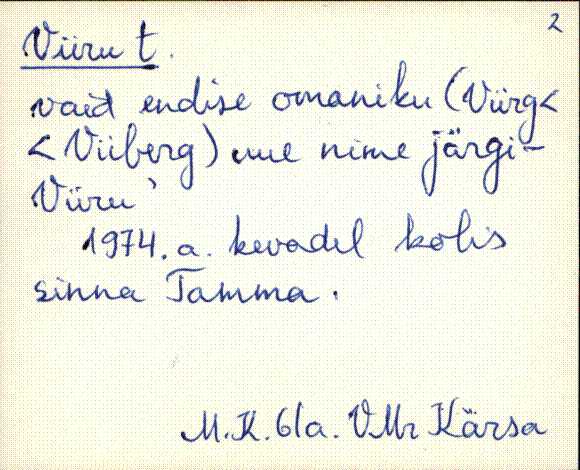 2
Viiru t.
vaid endise omaniku (Viirg<
< Viiberg) uue nime järgi-
Viiru'
1974.a. kevadel kolis
sinna Tamma.
M.K. 61a. VMr Kärsa